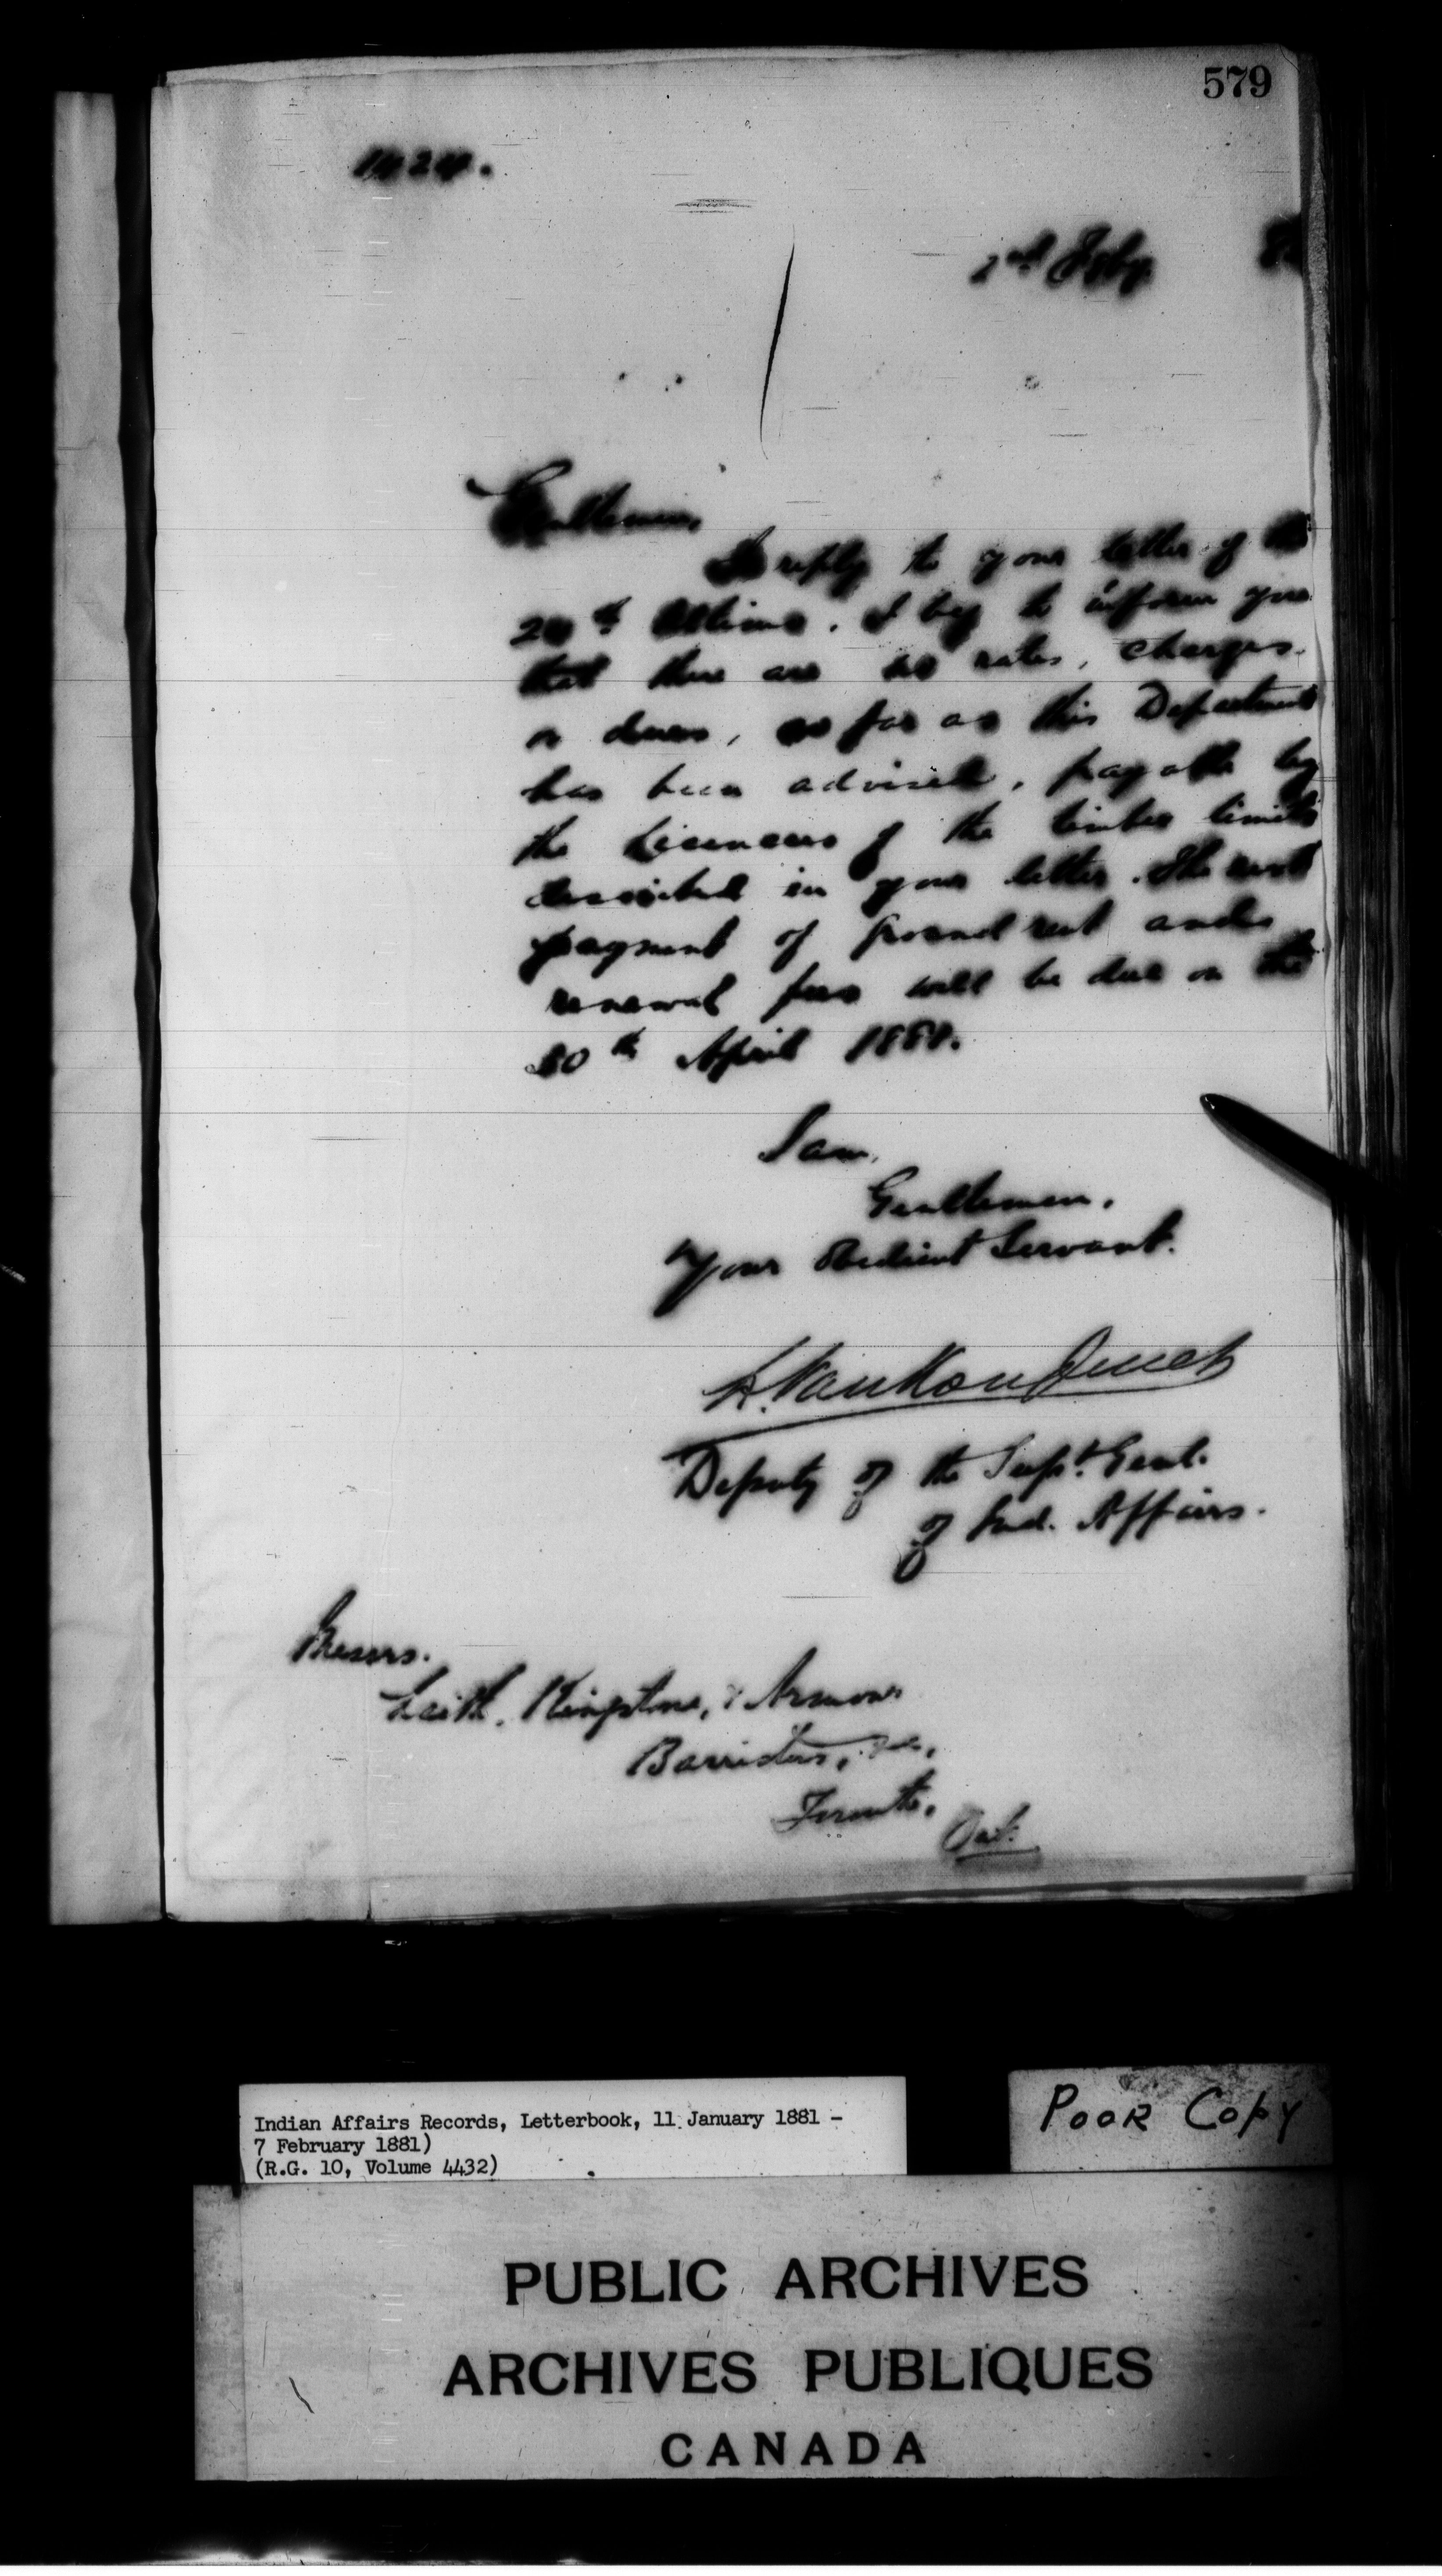 579
2nd Feby
Gentlemen,
In reply to your letter of the
Ultimo. I beg to inform you
that there are no rates, charges
or dues, so far as this Department
has been advised, payable by
the Licencees of the timber limits
described in your letter. The next
payment of ground rent and
renewal fees will be due on the
30th April 1881.
I am,
Gentlemen,
Your Obedient Servant.
L. VanKoughnet
Deputy of the Supt. Genl.
of Ind. Affairs.
Messrs.
Leith, Kingstone, & Armour
Barristers, &c,
Toronto,
Ont.
Indian Affairs Records, Letterbook, 11 January 1881 -
7 February 1881)
(R.G. 10, Volume 4432)
POOR COPY
PUBLIC ARCHIVES
ARCHIVES PUBLIQUES
CANADA